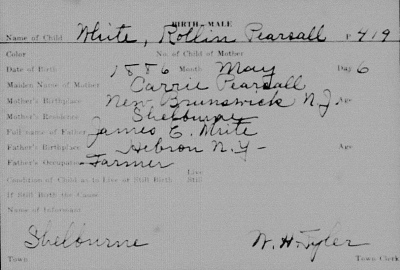 BIRTH - MALE
Name of Child White, Rollin Pearsall P 419
Color No. of Child of Mother
Date of Birth 1886 Month May Day 6
Maiden Name of Mother Carrie Pearsall
Mother's Birthplace New Brunswick N.J. Age
Mother's Residence Shelburne
Full name of Father James C. White
Father's Birthplace Hebron N.Y- Age
Father's Occupation Farmer
Condition of Child as to Live or Still Birth Live Still
If Still Birth the Cause
Name of Informant
Shelburne W. H. Tyler
Town Town Clerk